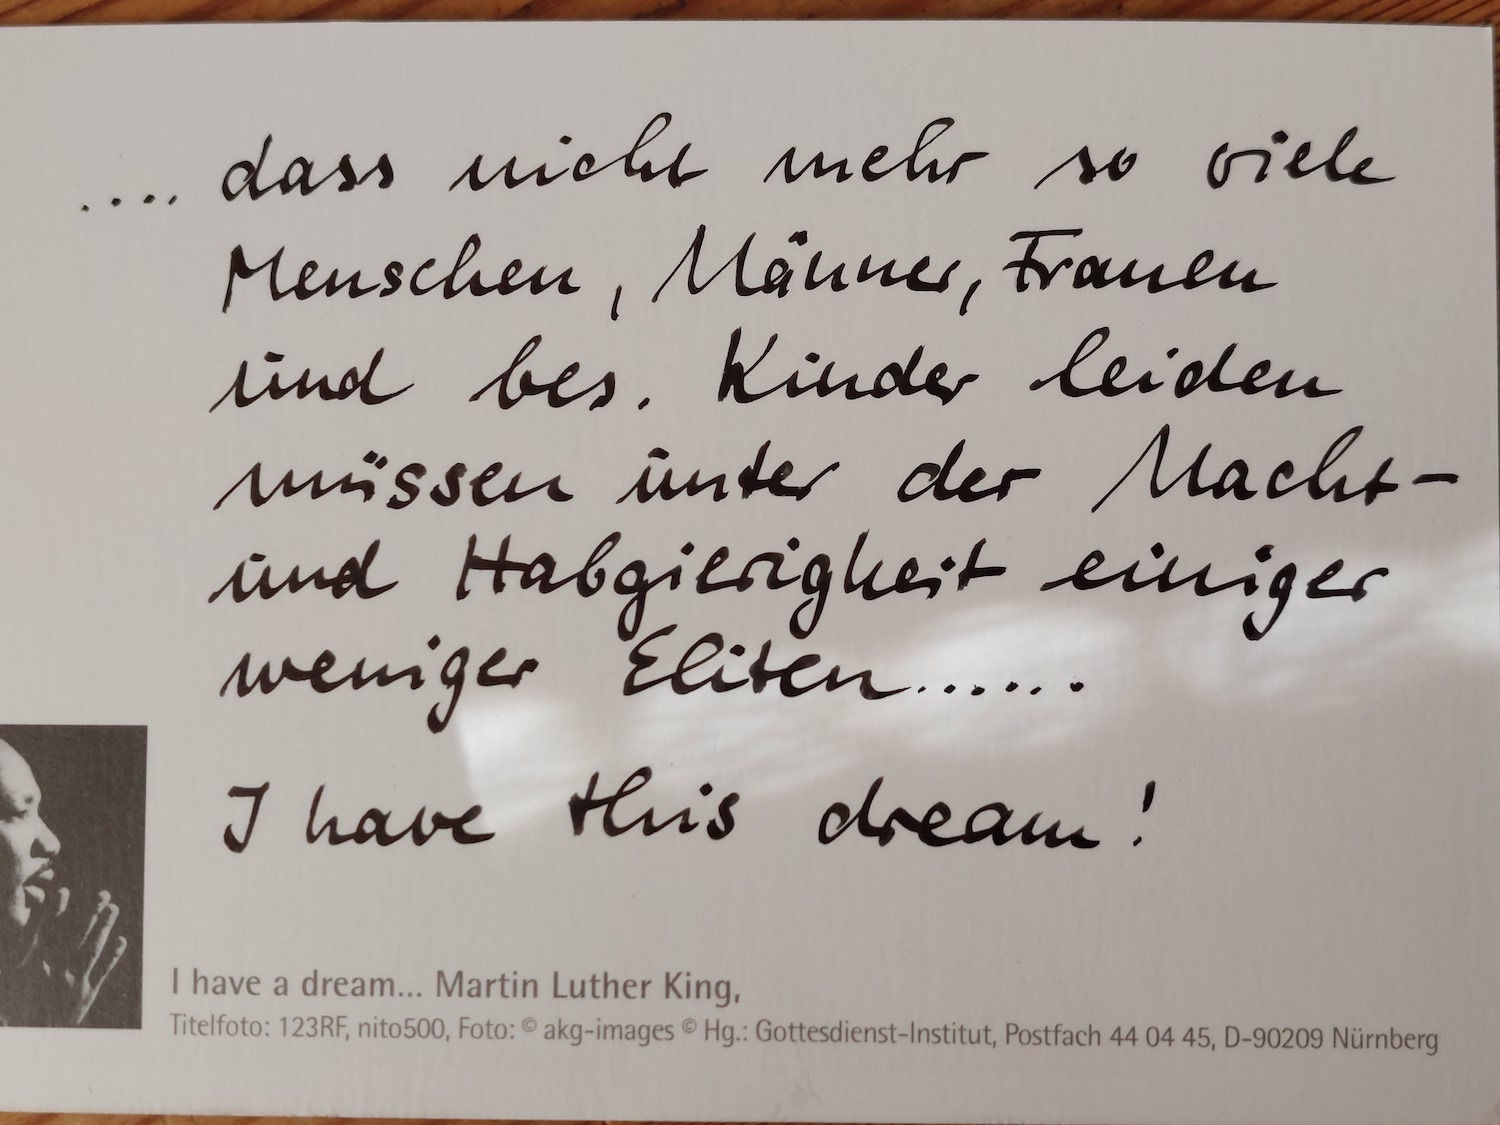 .... dass nicht mehr so viele
Menschen, Männer, Frauen
und bes. Kinder leiden
müssen unter der Macht-
und Habgierigkeit einiger
weniger Eliten......
I have this dream!
I have a dream... Martin Luther King,
Titelfoto: 123RF, nito500, Foto: © akg-images © Hg.: Gottesdienst-Institut, Postfach 44 04 45, D-90209 Nürnberg